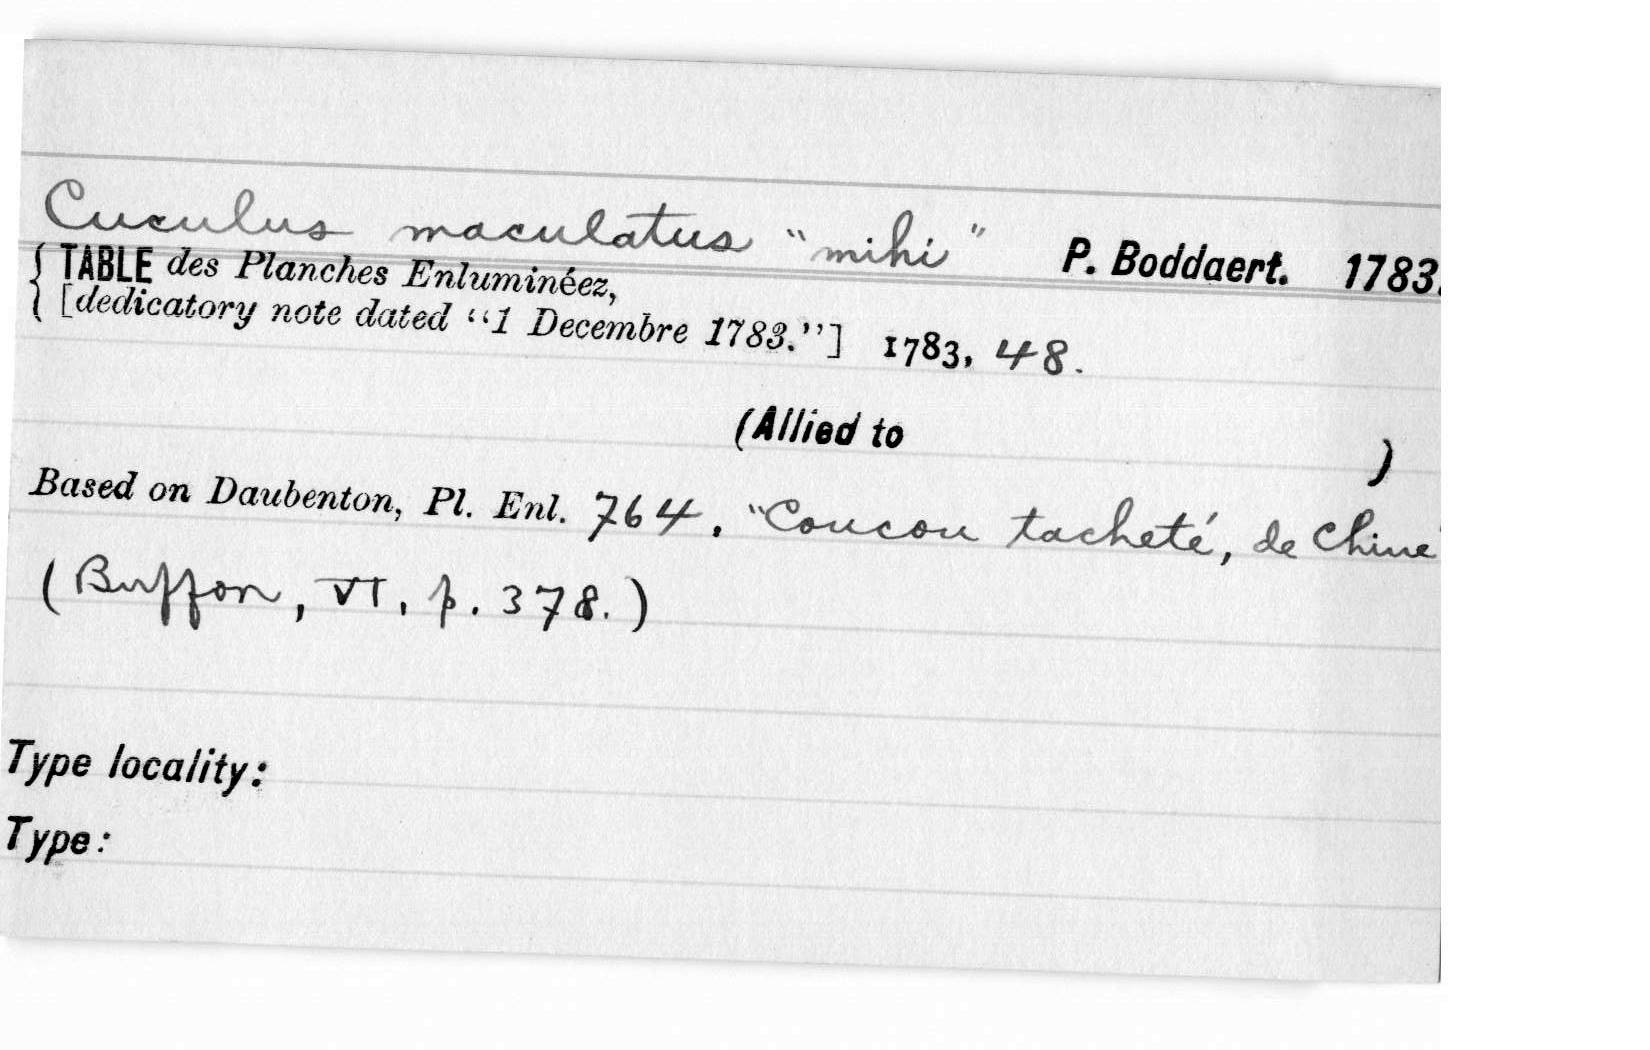 Cuculus maculatus "mihi" P. Boddaert. 1783.
{ TABLE des Planches Enluminéez,
{ [dedicatory note dated "1 Decembre 1783."] 1783, 48.
(Allied to )
Based on Daubenton, Pl. Enl. 764, "Coucou tacheté, de Chine"
(Buffon, VI, p. 378.)
Type locality:
Type: